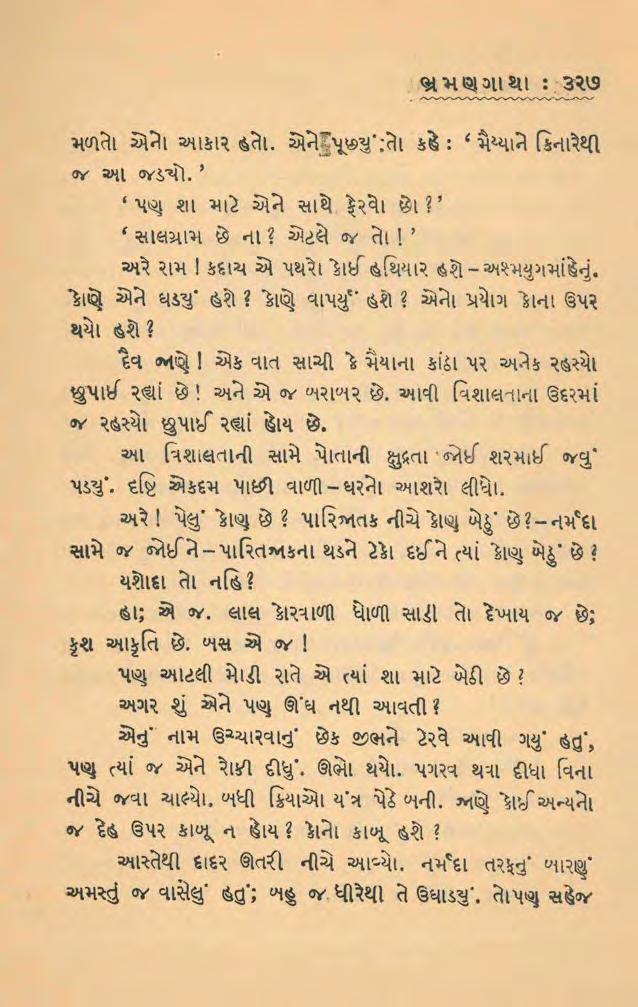 ભ્રમણગાથા : ૩૨૭
મળતો એનો આકાર હતો. એને પૂછ્યું; તો કહે : ‘ મૈય્યાને કિનારેથી
જ આ જડયો. ’
‘ પણ શા માટે એને સાથે ફેરવો છો ? ’
‘ સાલગ્રામ છે ના ? એટલે જ તો ! ’
અરે રામ ! કદાચ એ પથરો કોઈ હથિયાર હશે – અશ્મયુગમાંહેનું.
કોણે એને ઘડયું હશે ? કોણે વાપર્યું હશે ? એનો પ્રયોગ કોના ઉપર
થયો હશે ?
દૈવ જાણે ! એક વાત સાચી કે મૈયાના કાંઠા પર અનેક રહસ્યો
છુપાઈ રહ્યાં છે ! અને એ જ બરાબર છે. આવી વિશાલતાના ઉદરમાં
જ રહસ્યો છુપાઈ રહ્યાં હોય છે.
આ વિશાલતાની સામે પોતાની ક્ષુદ્રતા જોઈ શરમાઈ જવું
પડયું. દૃષ્ટિ એકદમ પાછી વાળી – ઘરનો આશરો લીધો.
અરે ! પેલું કોણ છે ? પારિજાતક નીચે કોણ બેઠું છે ? – નર્મદા
સામે જ જોઈને – પારિતજાકના થડને ટેકો દઈને ત્યાં કોણ બેઠું છે ?
યશોદા તો નહિ ?
હા; એ જ. લાલ કોરવાળી ધોળી સાડી તો દેખાય જ છે;
કૃશ આકૃતિ છે. બસ એ જ !
પણ આટલી મોડી રાતે એ ત્યાં શા માટે બેઠી છે ?
અગર શું એને પણ ઊંઘ નથી આવતી ?
એનું નામ ઉચ્ચારવાનું છેક જીભને ટેરવે આવી ગયું હતું,
પણ ત્યાં જ એને રોકી દીધું. ઊભો થયો. પગરવ થવા દીધા વિના
નીચે જવા ચાલ્યો. બધી ક્રિયાઓ યંત્ર પેઠે બની. જાણે કોઈ અન્યનો
જ દેહ ઉપર કાબૂ ન હોય ? કોનો કાબૂ હશે ?
આસ્તેથી દાદર ઊતરી નીચે આવ્યો. નર્મદા તરફનું બારણું
અમસ્તું જ વાસેલું હતું; બહુ જ ધીરેથી તે ઉઘાડયું. તોપણ સહેજ